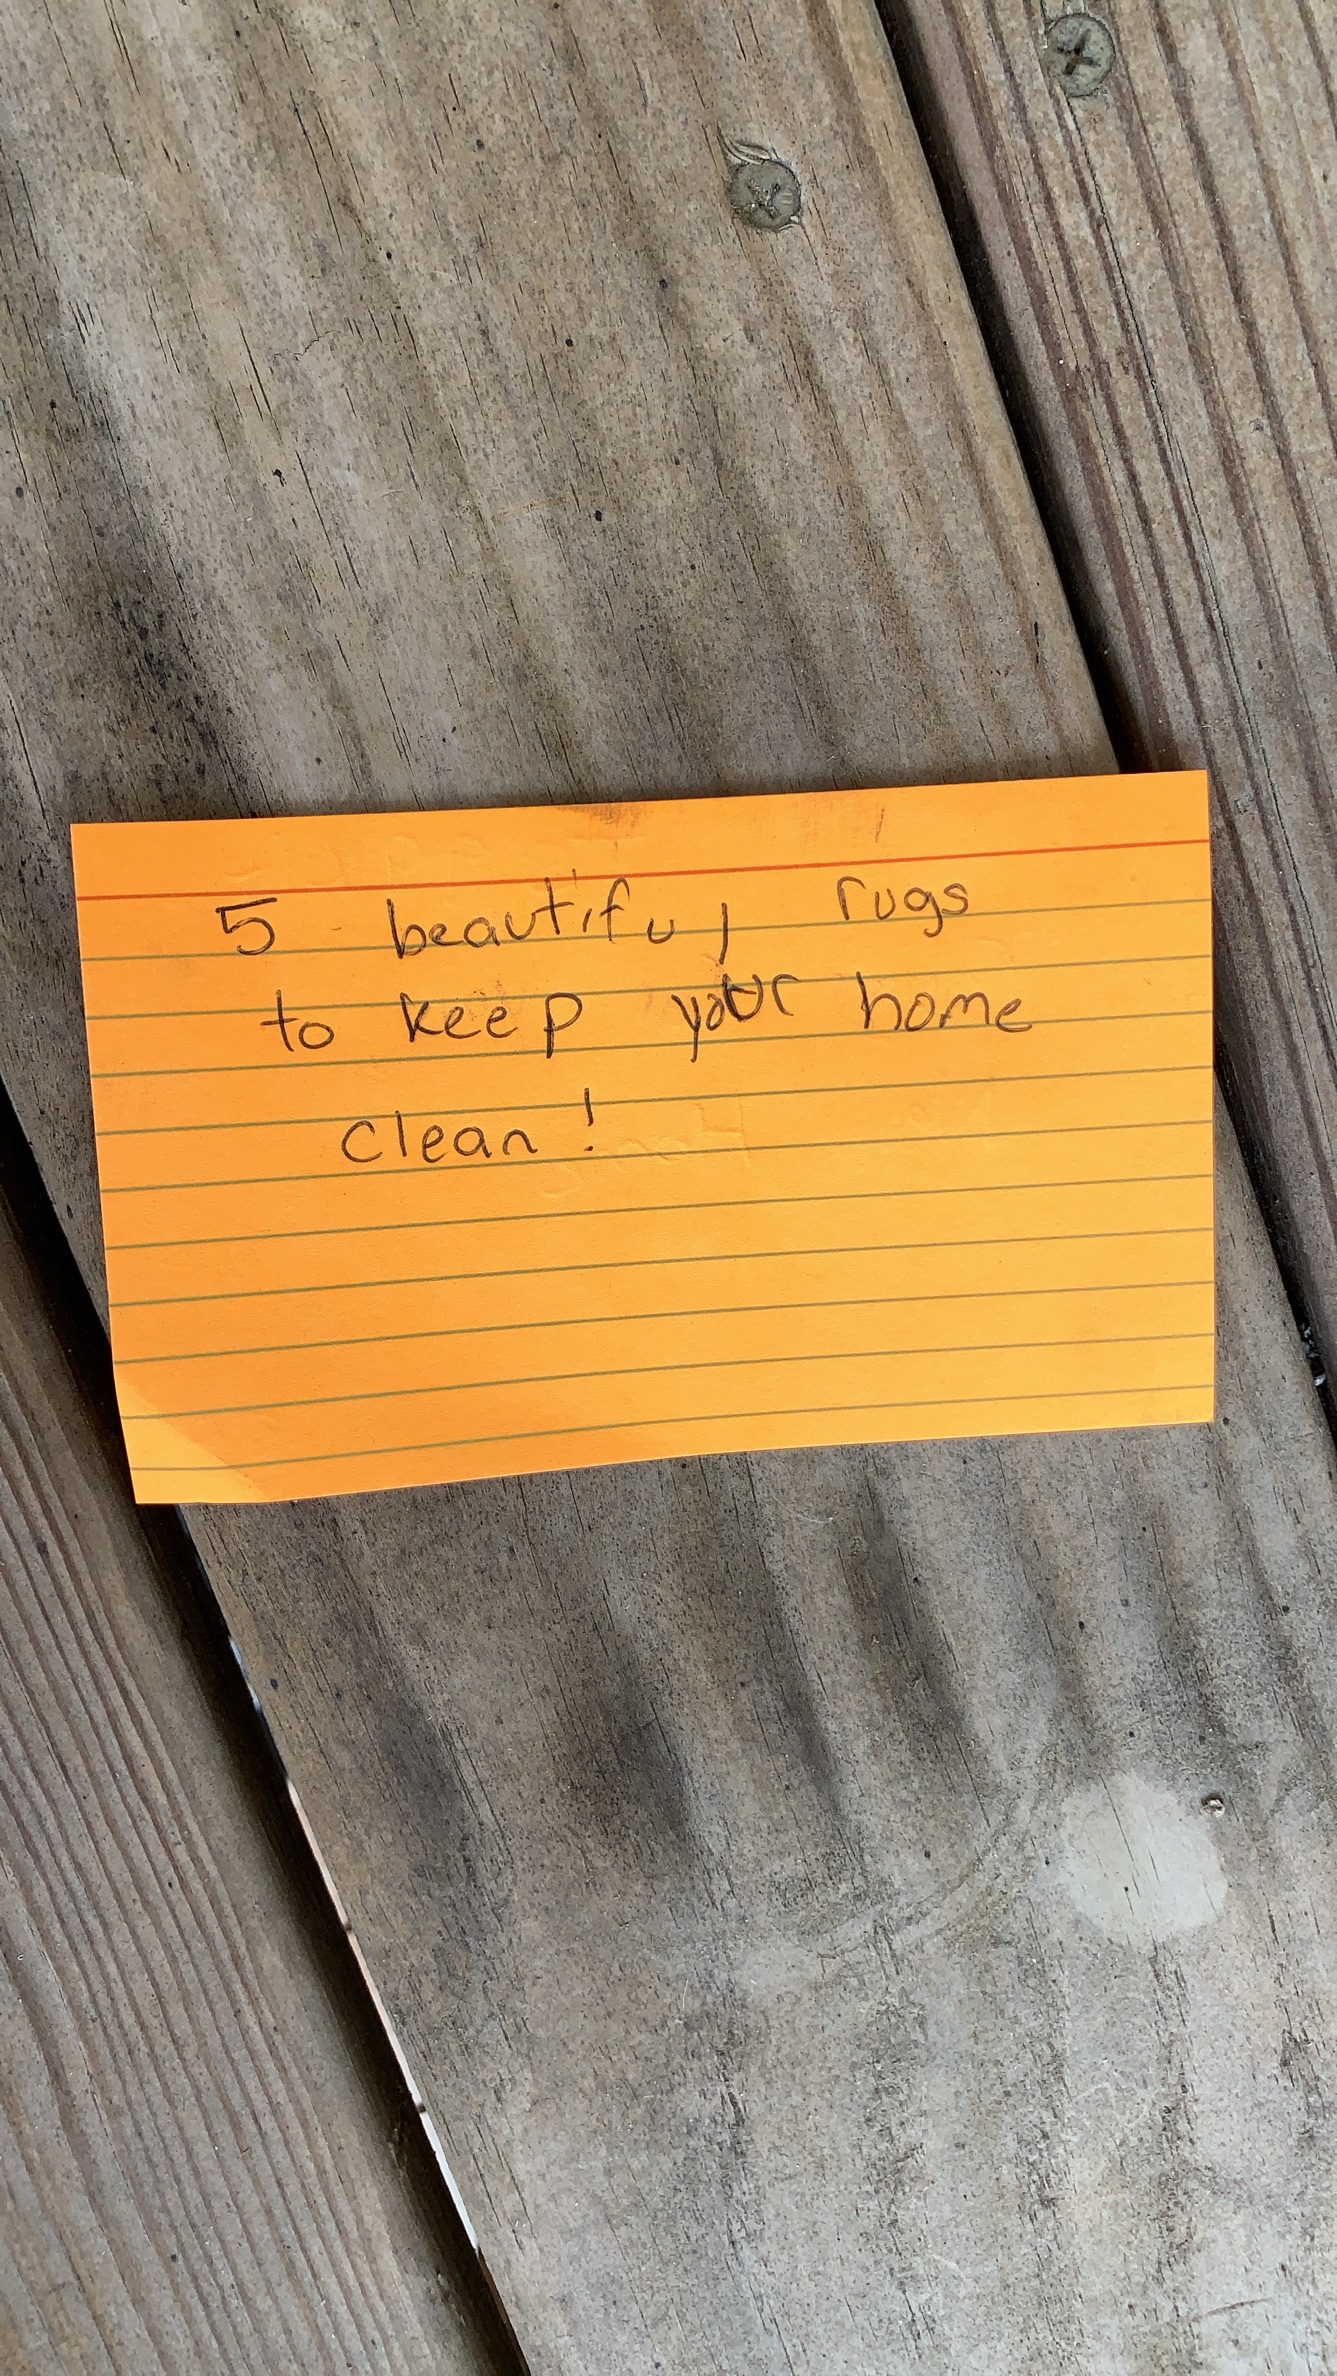 5 beautiful rugs
to keep your home
clean!